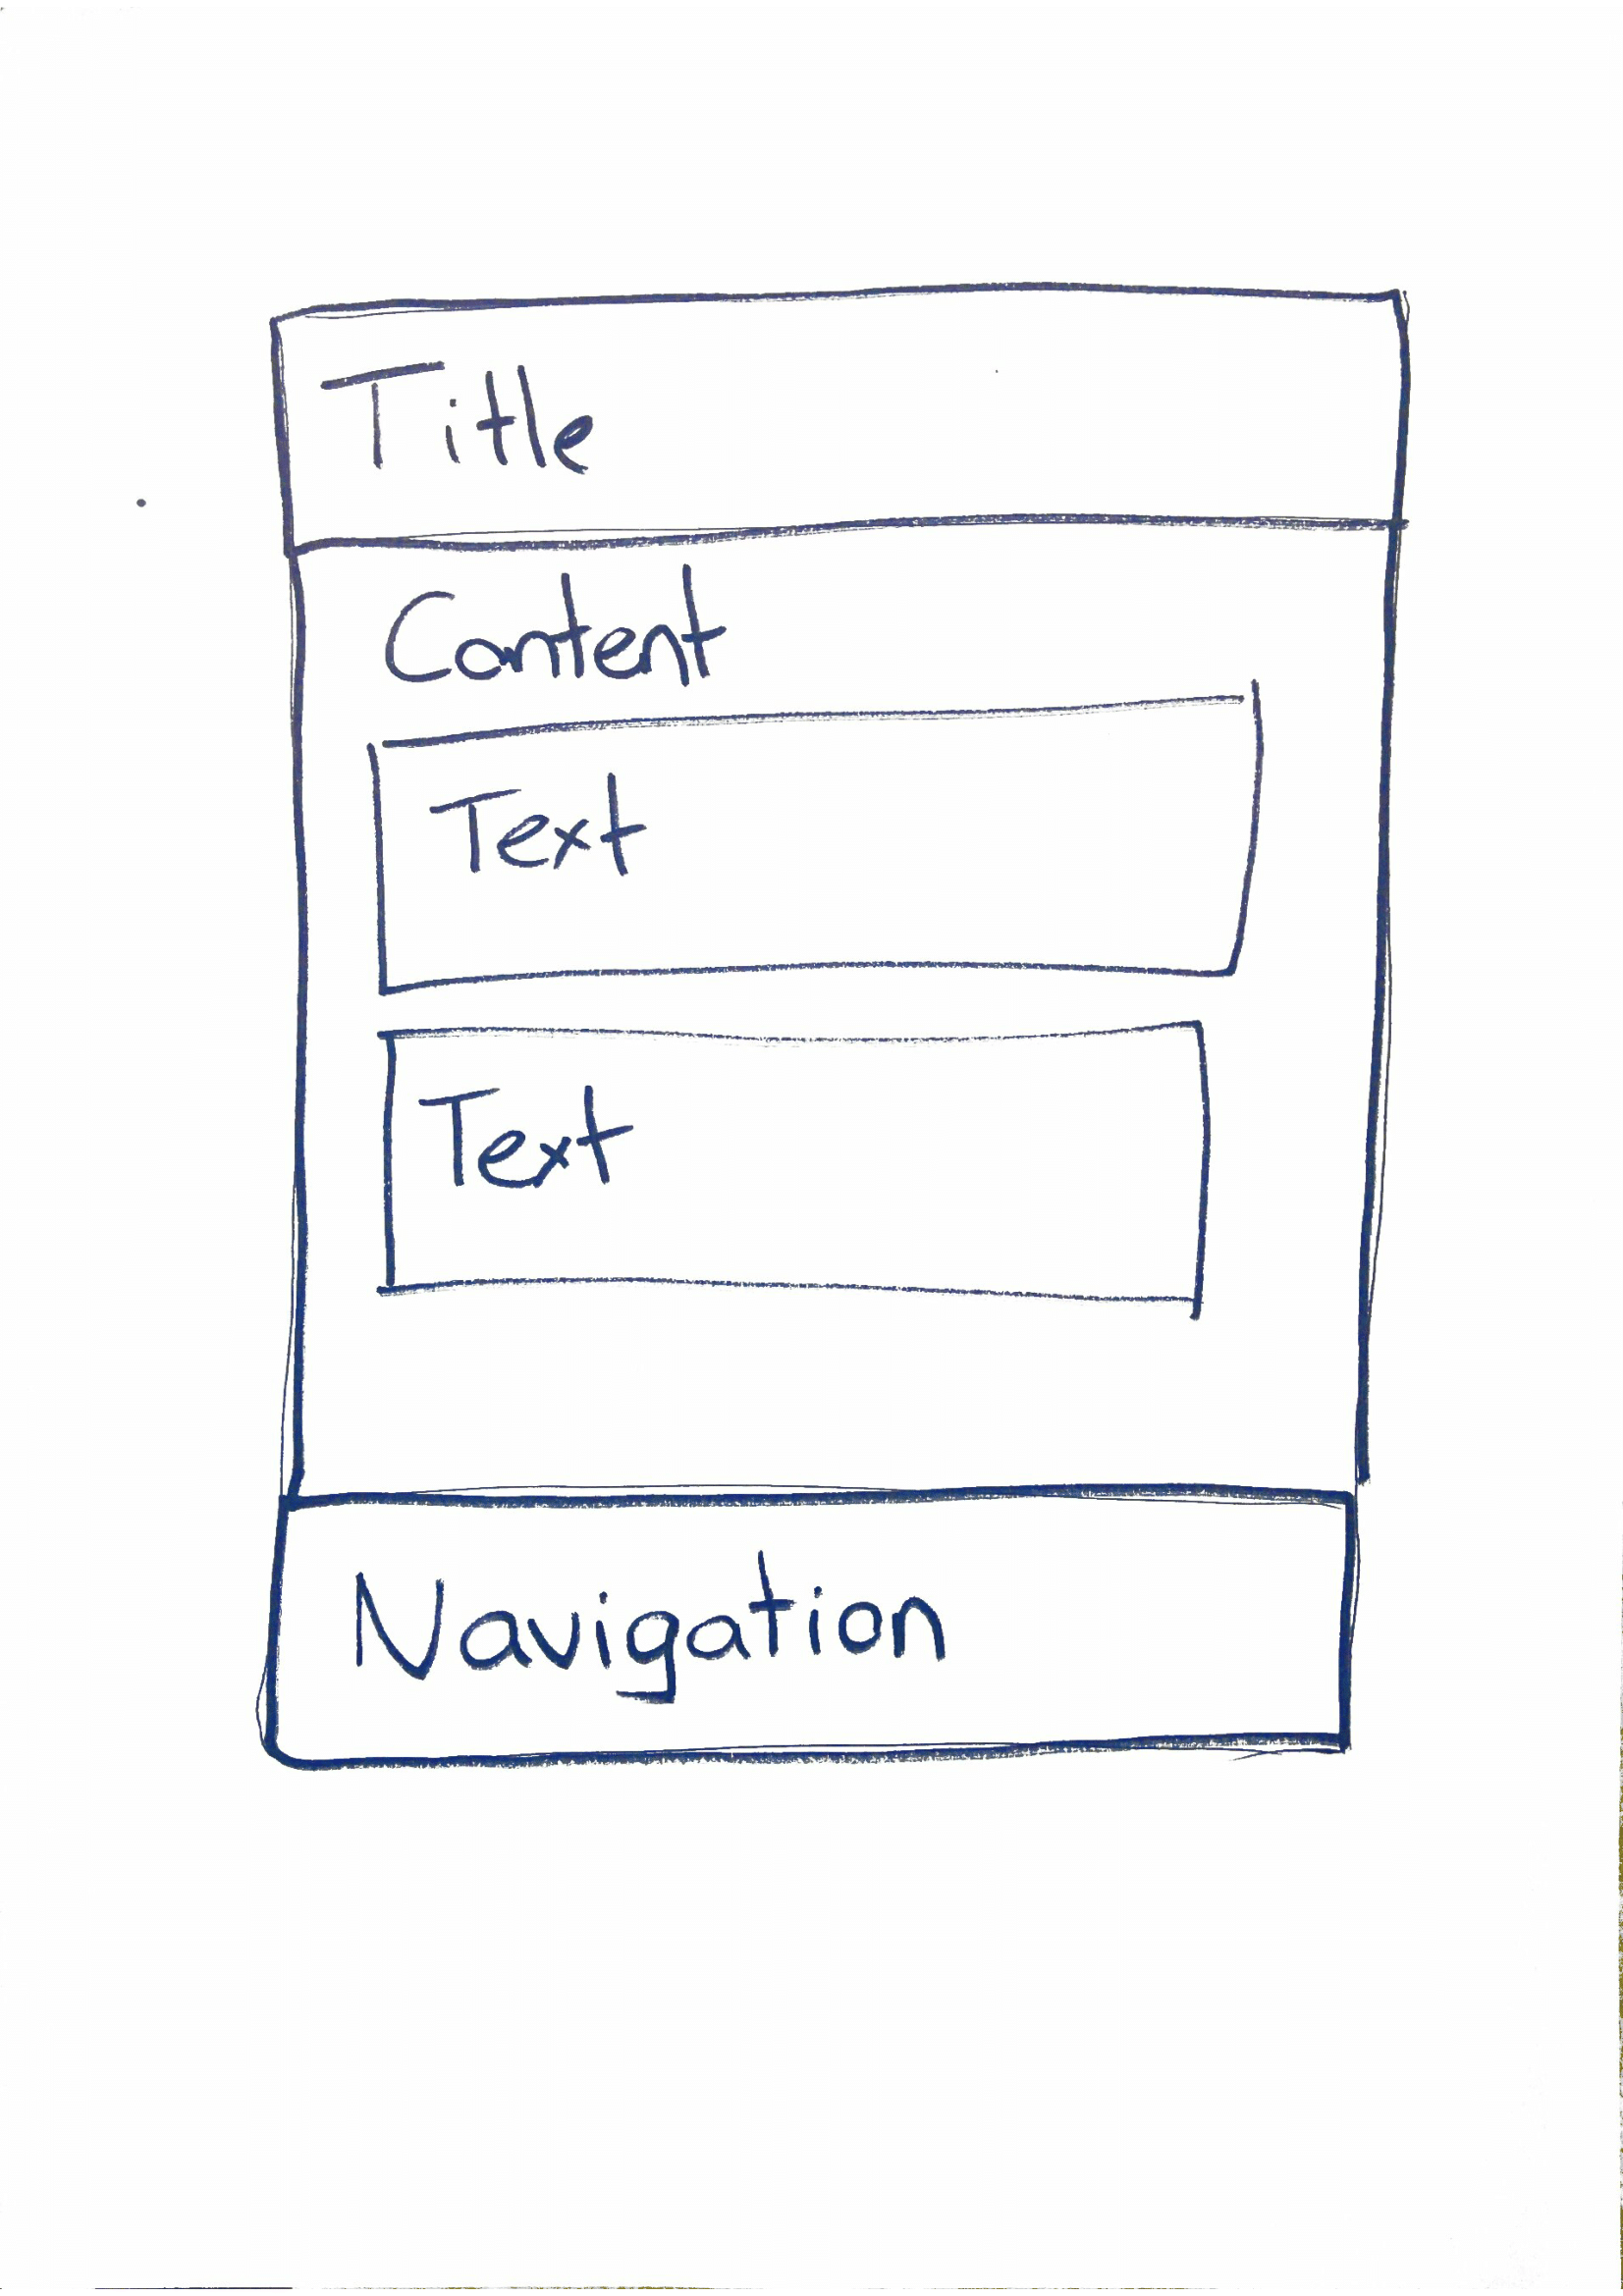 Title
Content
Text
Text
Navigation